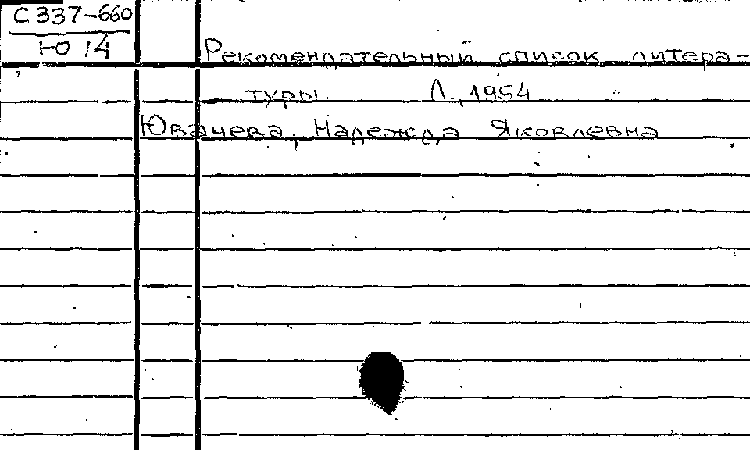 С 337-660
Ю 14
Рекомендательный список литера-
туры. Л., 1954
Ювачева, Надежда Яковлевна